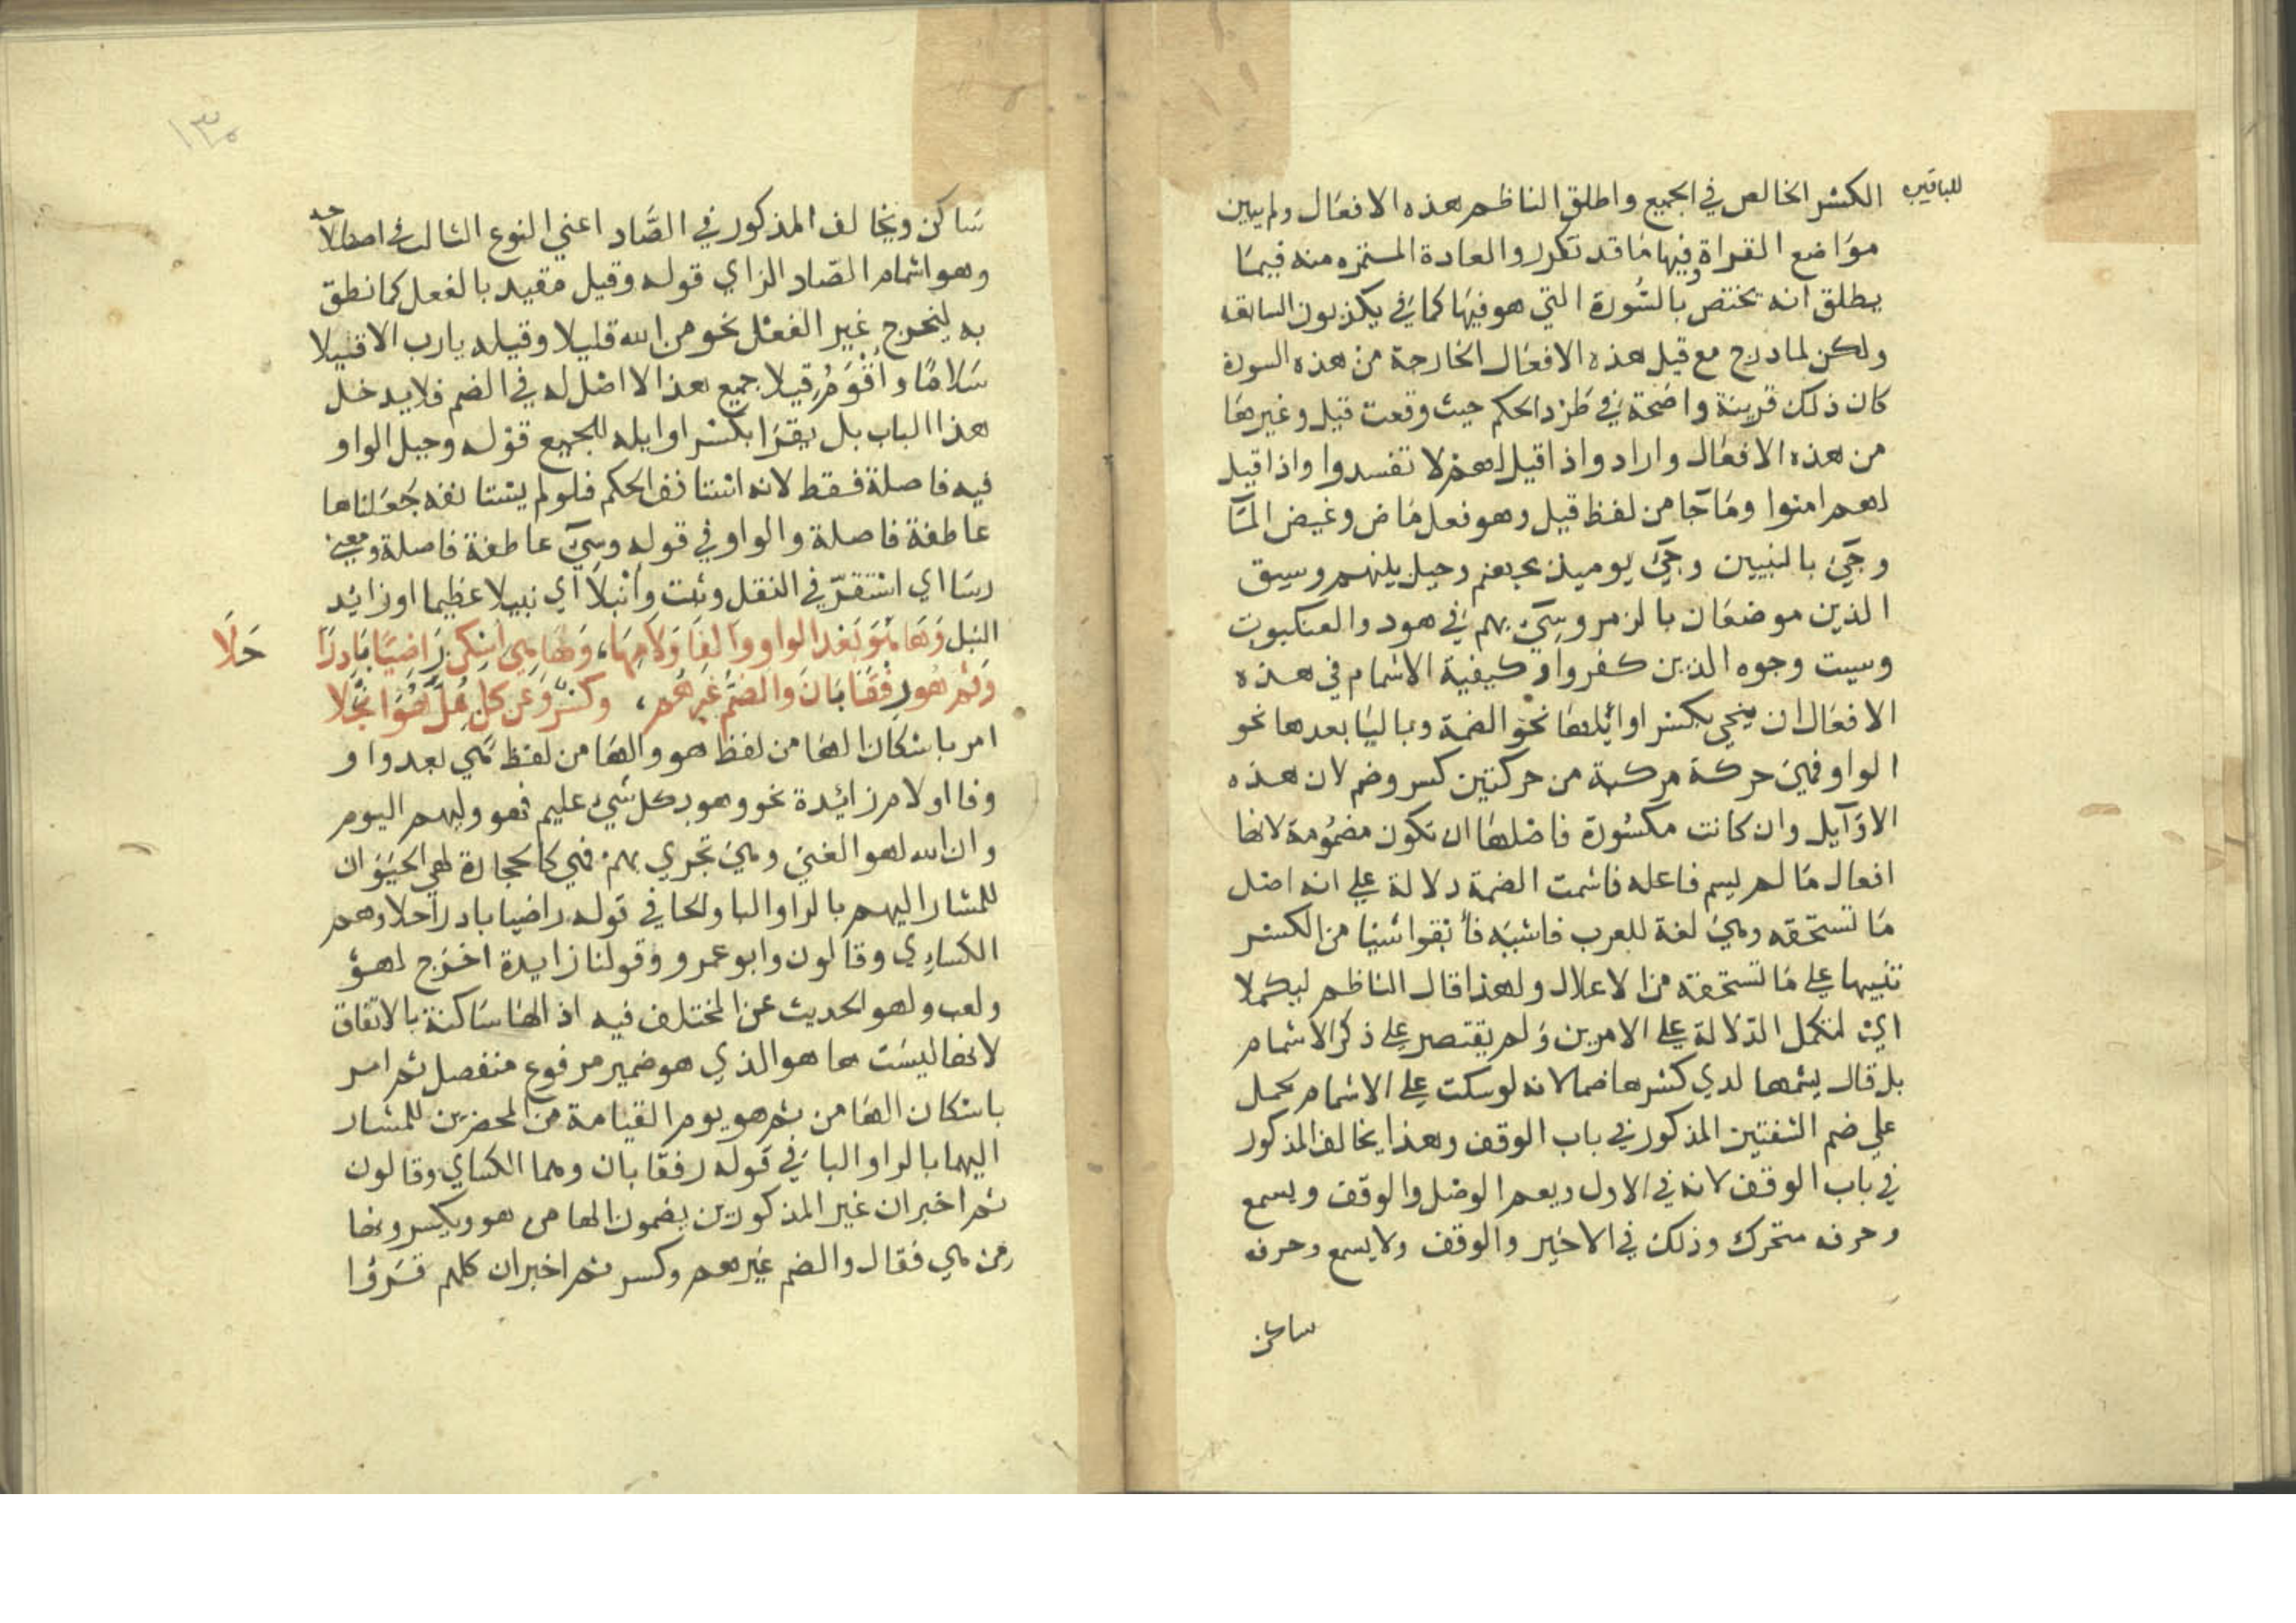 للباقين
الكسر الخالص في الجميع واطلق الناظم هذه الافعال ولم يبين
مواضع القراة وفيها ما قد تكرر والعادة المستمره منه فيما
يطلق انه يختص بالسورة التي هو فيها كما في يكذبون السابقه
ولكن لما درج مع قيل هذه الافعال الخارجة من هذه السورة
كان ذلك قرينة واضحة في طرد الحكم حيث وقعت قيل وغيرها
من هذه الافعال واراد واذا قيل لهم لا تفسدوا واذا قيل
لهم امنوا وما جا من لفظ قيل وهو فعل ماض وغيض المآ
وجيء بالنبيين وجيء يوميذ بجهنم وحيل بينهم وسيق
الذين موضعان بالزمر وسيء بهم في هود والعنكبوت
وسيت وجوه الذين كفروا وكيفية الاشمام في هذه
الافعال ان ينحي بكسر اوائلها نحو الضمة وباليا بعدها نحو
الواو فهي حركة مركبة من حركتين كسر وضم لان هذه
الاوآيل وان كانت مكسورة فاصلها ان تكون مضمومة لانها
افعال ما لم يسم فاعله فاشمت الضمة دلالة علي انه اصل
ما تستحقه وهي لغة للعرب فاشيه فأبقوا شيا من الكسر
تنبيها علي ما تستحقه من الاعلال ولهذا قال الناظم ليكملا
اي لتكمل الدلالة علي الامرين ولم يقتصر علي ذكر الاشمام
بل قال يشمها لدي كسرها ضما لانه لو سكت علي الاشمام لحمل
علي ضم الشفتين المذكور في باب الوقف وهذا يخالف المذكور
في باب الوقف لانه في الاول ويعم الوصل والوقف ويسمع
وحرفه متحرك وذلك في الاخير والوقف ولا يسمع وحرفه
ساكن
١٣٠
ساكن ويخالف المذكور في الصاد اعني النوع الثالث
وهو اشمام الصاد الزاي قوله وقيل مقيد بالفعل كما نطق
به ليخرج غير الفعل نحو من الله قليلا وقيله يارب الا قيلا
سلاما واقوم قيلا جميع هذا لا اصل له في الضم فلا يدخل
هذا الباب بل يقرا بكسر اوايله للجميع قوله وحيل الواو
فيه فاصلة فقط لانه استانف الحكم فلو لم يستانفه جعلناها
عاطفة فاصلة والواو في قوله وسيء عاطفة فاصلة ومعني
رسا اي استقر في النقل وثبت وانبلا اي نبيلا عظيما او زائد
النبل وها هو بعد الواو والفا ولامها، وها هي اسكن راضيا باردا حلا
وثم هو رفقا بان والضم غيرهم، وكسر وعن كل يمل هو انجلا
امر باسكان الها من لفظ هو والها من لفظ هي بعد واو
وفا او لام زائدة نحو وهو بكل شيء عليم فهو وليهم اليوم
وان الله لهو الغني وهي تجري بهم فهي كالحجارة لهي الحيوان
للمشار اليهم بالرا والبا والحا في قوله راضيا باردا حلا وهم
الكساءي وقالون وابو عمرو وقولنا زايدة اخرج لهو
ولعب ولهو الحديث عن المختلف فيه اذ الها ساكنة بالاتفاق
لانها ليست ها هو الذي هو ضمير مرفوع منفصل ثم امر
باسكان الها من ثم هو يوم القيامة من المحضرين للمشار
اليهما بالرا والبا في قوله رفقا بان وهما الكساي وقالون
ثم اخبر ان غير المذكورين يضمون الها من هو ويكسرونها
من هي فقال والضم غيرهم وكسر ثم اخبر ان كلهم قرؤا